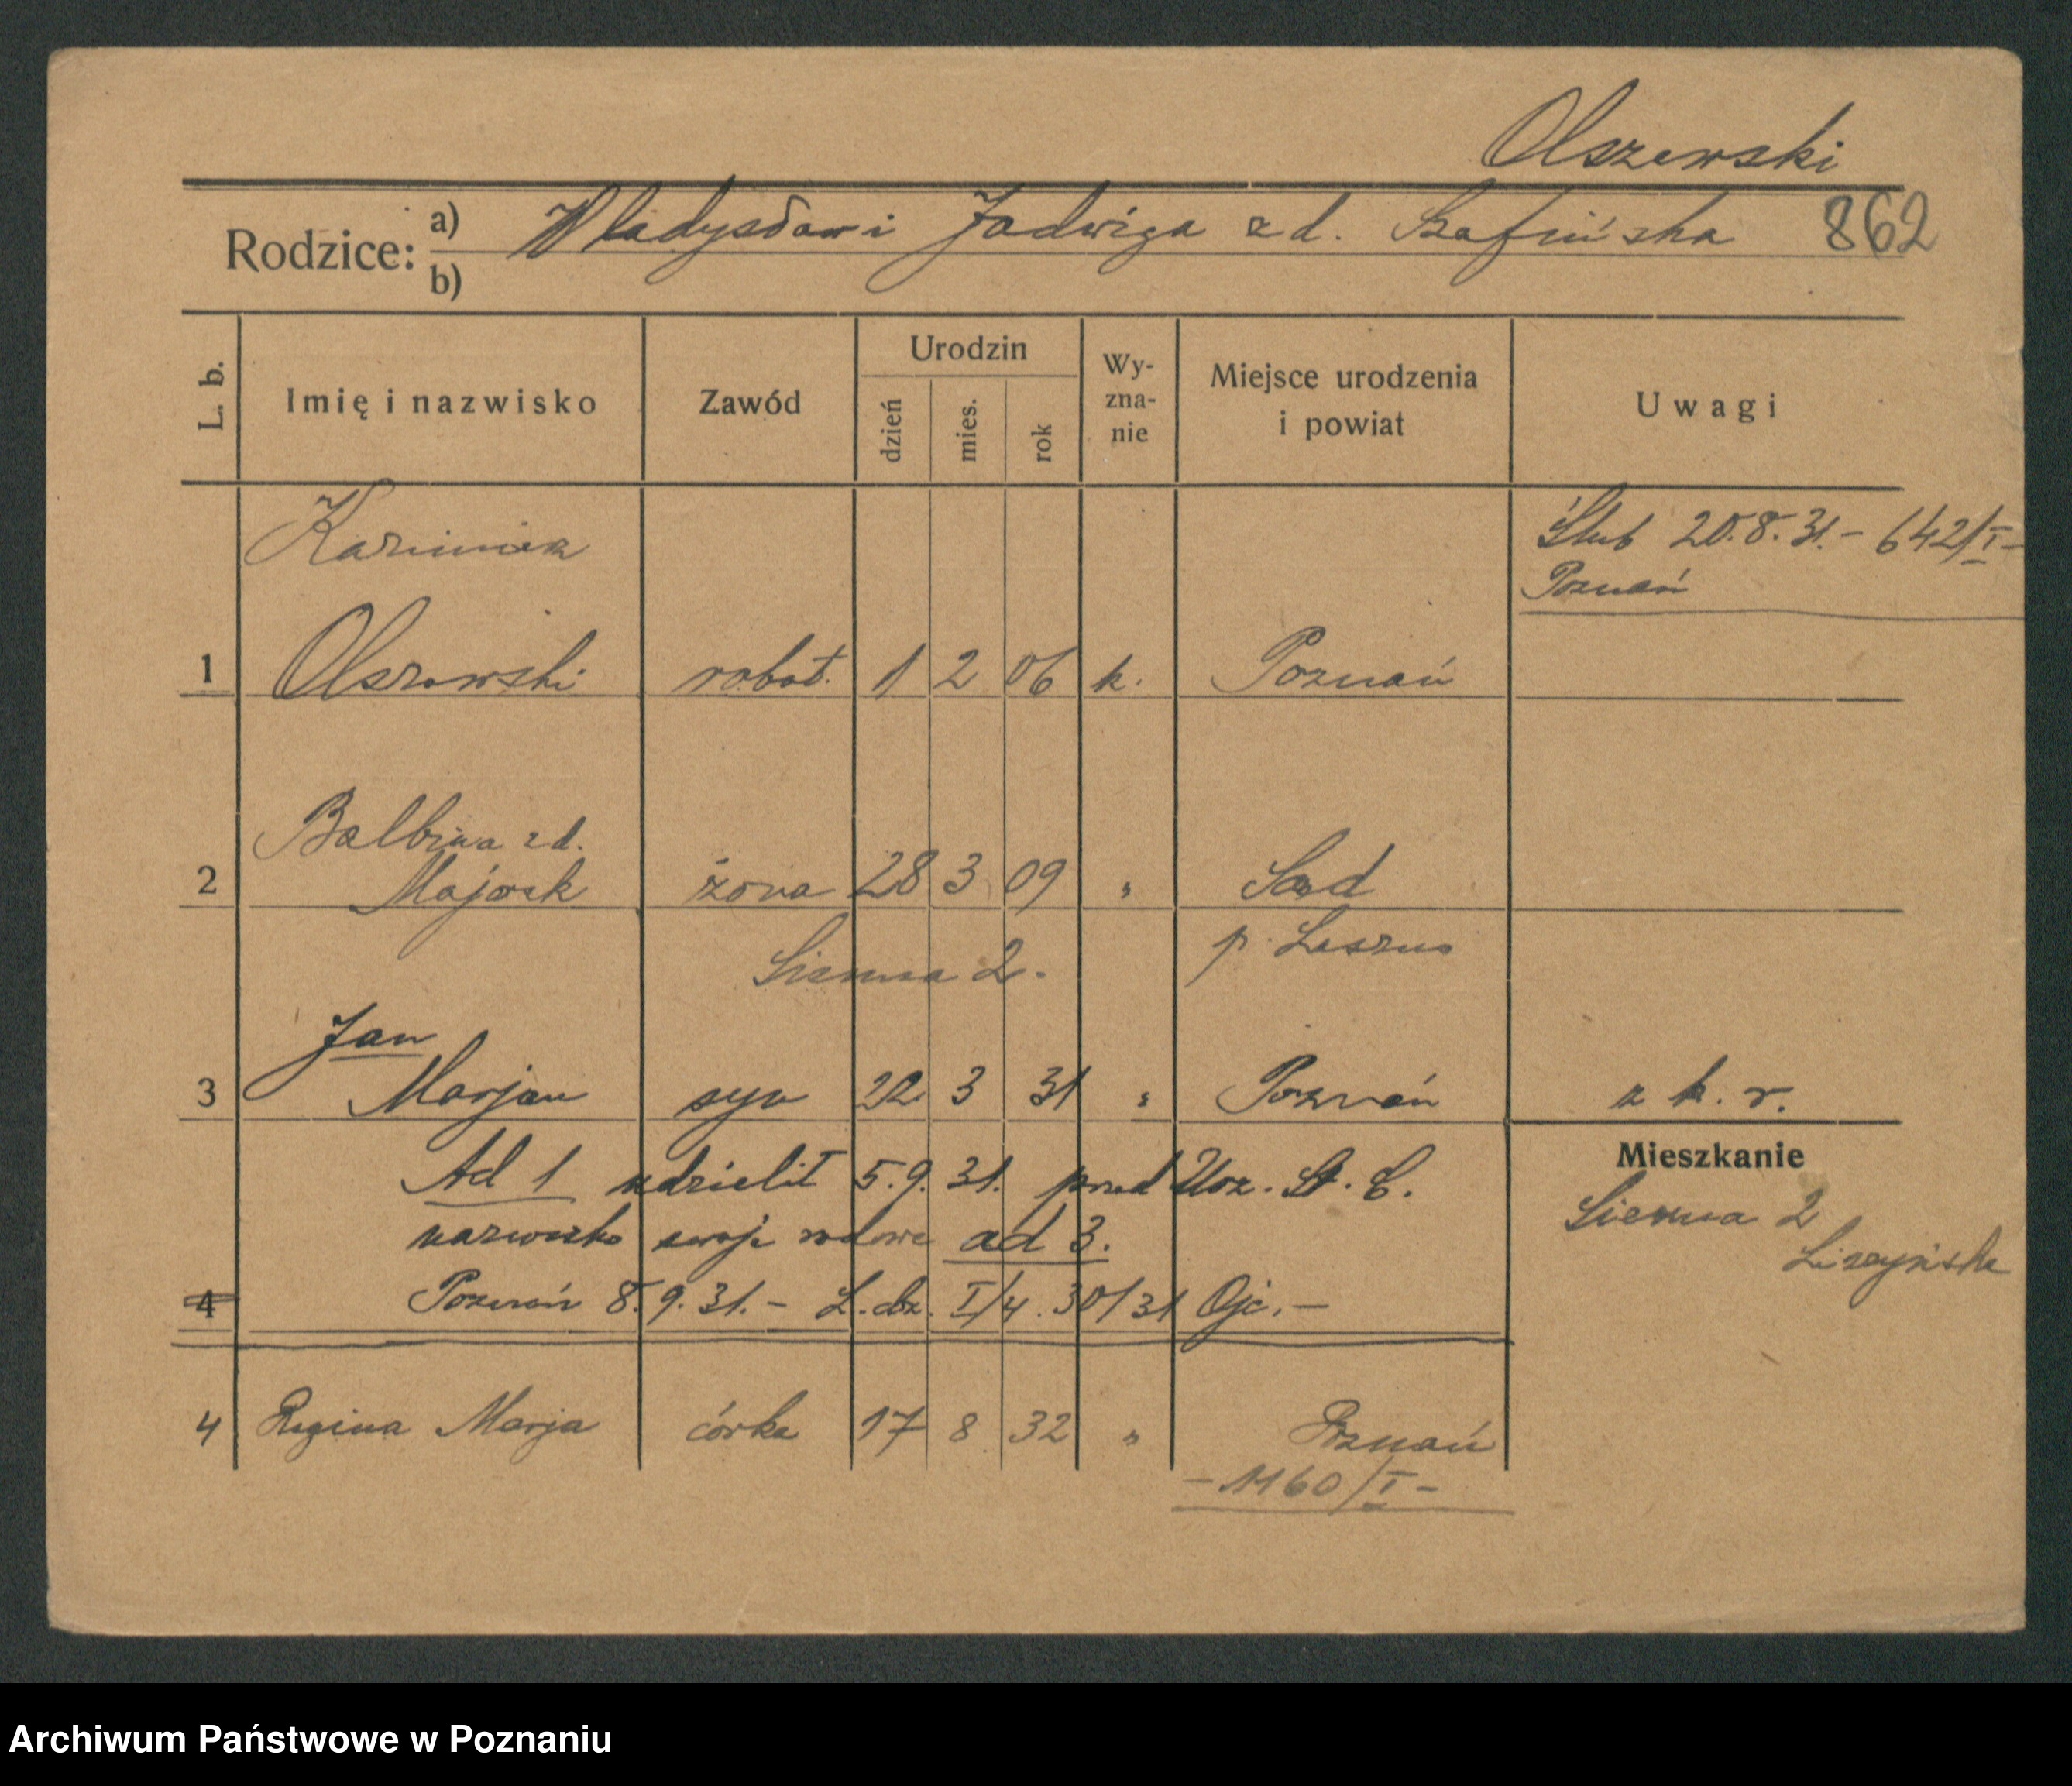 Olszewski
Rodzice: a) Władysław i Jadwiga z d. Szafińska 862
b)
L. b. Imię i nazwisko Zawód Urodzin dzień mies. rok Wy-zna-nie Miejsce urodzenia i powiat Uwagi
Kazimierz Ślub 20.8.31.- 642/I-
Poznań
1 Olszewski robot. 1 2 06 k. Poznań
Balbina z d.
2 Majorek żona 28 3 09 " Sąd
p. Leszno
Sienna 2.
Jan
3 Marjan syn 22 3 31 " Poznań z k. r.
Mieszkanie
Ad 1 udzielił 5.9.31. przed Urz. St. C.
Sienna 2
nazwisko swoje rodowe ad 3.
4 Poznań 8.9.31.- L. dz. I/4. 30/31 Ojc.-
4 Regina Marja córka 17 8 32 " Poznań
- 1160/I -
Archiwum Państwowe w Poznaniu